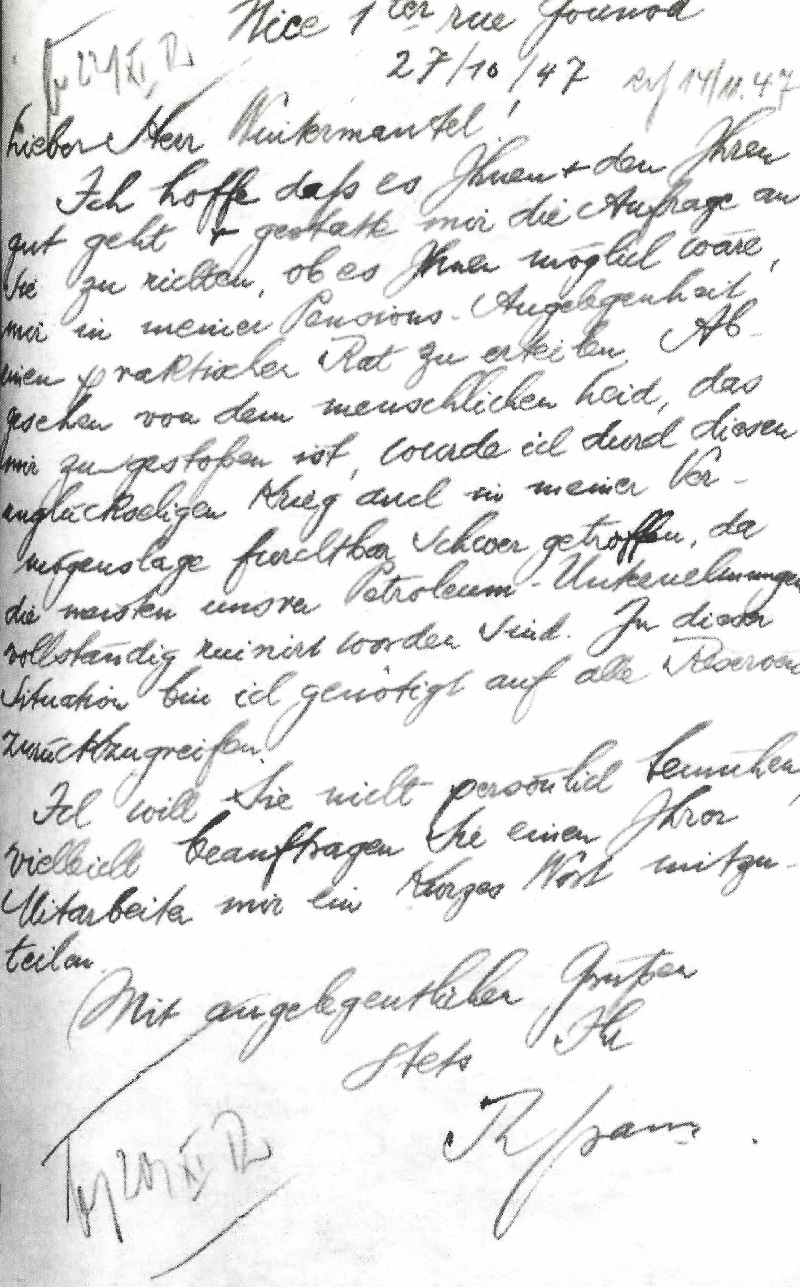 Nice 1 ter rue Gounod
27/10/47 14/11.47
Lieber Herr Winkermantel!
Ich hoffe daß es Ihnen + den Ihren
gut geht + gestatte mir die Anfrage an
Sie zu richten, ob es Ihnen möglich wäre,
mir in meiner Pensions-Angelegenheit
einen praktischen Rat zu erteilen. Ab-
gesehen von dem menschlichen Leid, das
mir zugestoßen ist, wurde ich durch diesen
unglückseligen Krieg auch in meiner Ver-
mögenslage furchtbar schwer getroffen, da
die meisten unsrer Petroleum-Unternehmungen
vollständig ruinirt worden sind. In dieser
Situation bin ich genötigt auf alle Reserven
zurückzugreifen.
Ich will Sie nicht persönlich bemühen,
vielleicht beauftragen Sie einen Ihrer
Mitarbeiter mir ein kurzes Wort mitzu-
teilen.
Mit angelegentlichen Grüßen
stets Ihr